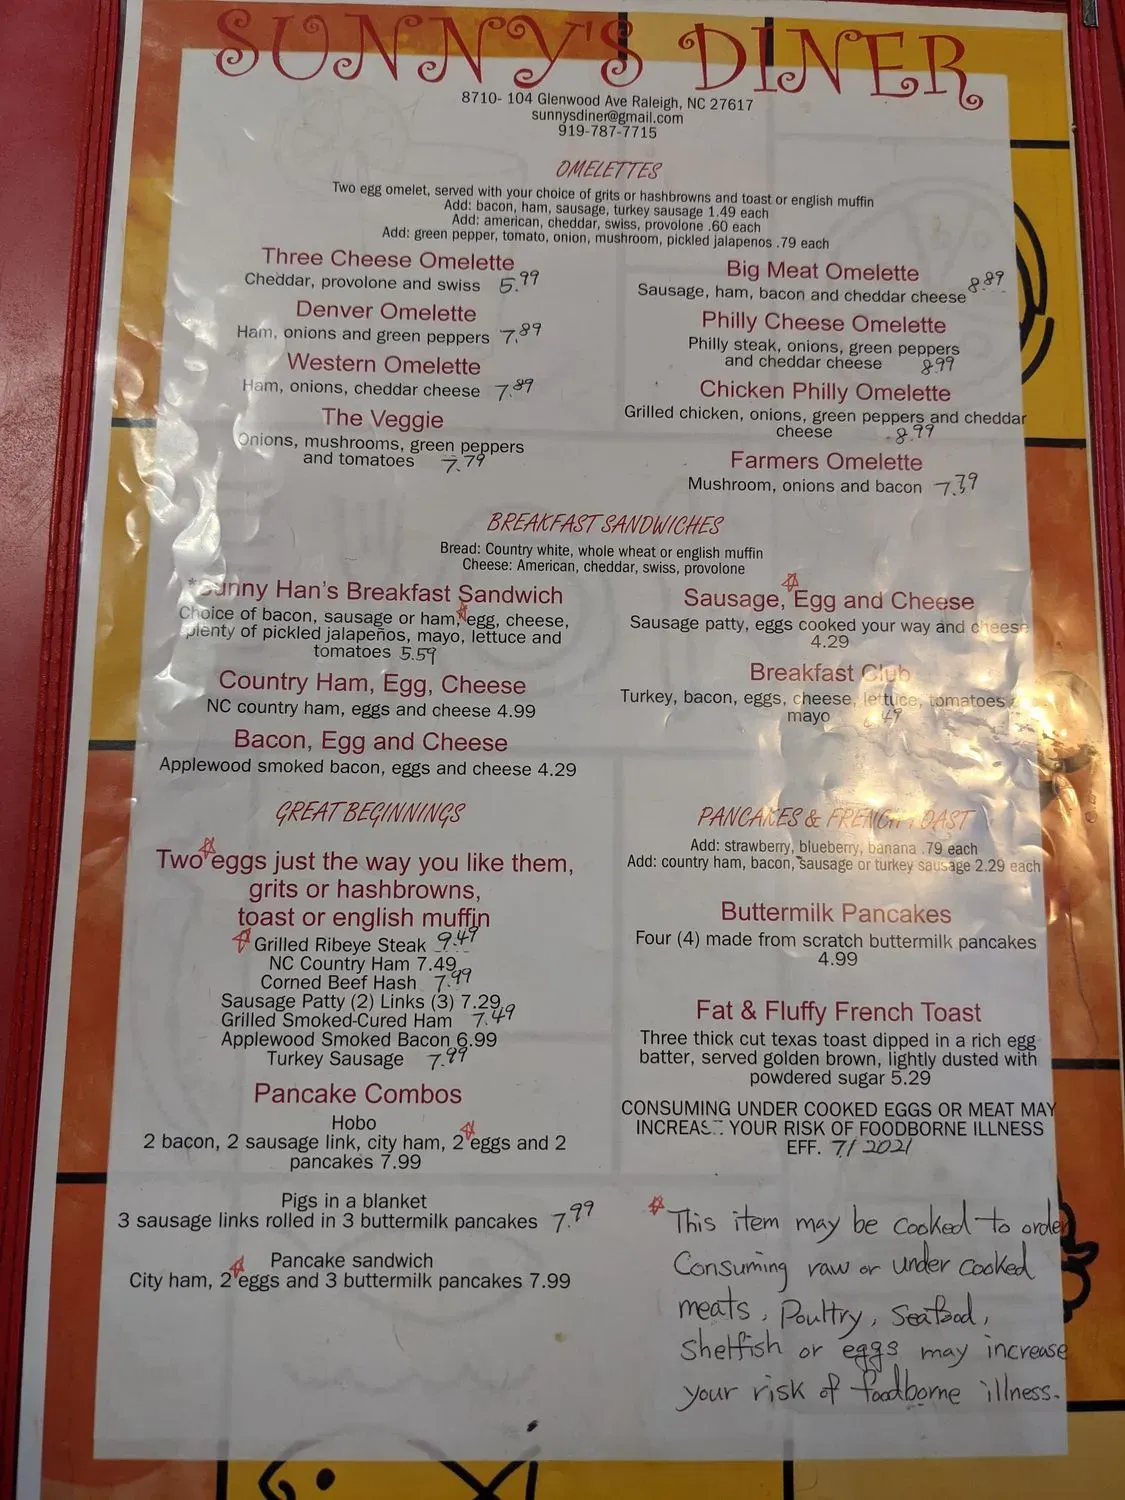 SUNNY'S DINER
8710- 104 Glenwood Ave Raleigh, NC 27617
sunnysdiner@gmail.com
919-787-7715
OMELETTES
Two egg omelet, served with your choice of grits or hashbrowns and toast or english muffin
Add: bacon, ham, sausage, turkey sausage 1.49 each
Add: american, cheddar, swiss, provolone .60 each
Add: green pepper, tomato, onion, mushroom, pickled jalapenos .79 each
Three Cheese Omelette
Cheddar, provolone and swiss 5.99
Denver Omelette
Ham, onions and green peppers 7.89
Western Omelette
Ham, onions, cheddar cheese 7.89
The Veggie
Onions, mushrooms, green peppers
and tomatoes 7.79
Big Meat Omelette
Sausage, ham, bacon and cheddar cheese 8.89
Philly Cheese Omelette
Philly steak, onions, green peppers
and cheddar cheese 8.99
Chicken Philly Omelette
Grilled chicken, onions, green peppers and cheddar
cheese 8.99
Farmers Omelette
Mushroom, onions and bacon
BREAKFAST SANDWICHES
Bread: Country white, whole wheat or english muffin
Cheese: American, cheddar, swiss, provolone
*Sunny Han's Breakfast Sandwich
Choice of bacon, sausage or ham, egg, cheese,
plenty of pickled jalapeños, mayo, lettuce and
tomatoes 5.59
Country Ham, Egg, Cheese
NC country ham, eggs and cheese 4.99
Bacon, Egg and Cheese
Applewood smoked bacon, eggs and cheese 4.29
Sausage, Egg and Cheese
Sausage patty, eggs cooked your way and cheese
4.29
Breakfast Club
Turkey, bacon, eggs, cheese, lettuce, tomatoes
mayo
GREAT BEGINNINGS
Two eggs just the way you like them,
grits or hashbrowns,
toast or english muffin
Grilled Ribeye Steak 9.49
NC Country Ham 7.49
Corned Beef Hash 7.99
Sausage Patty (2) Links (3) 7.29
Grilled Smoked-Cured Ham 7.49
Applewood Smoked Bacon 6.99
Turkey Sausage 7.99
Pancake Combos
Hobo
2 bacon, 2 sausage link, city ham, 2 eggs and 2
pancakes 7.99
Pigs in a blanket
3 sausage links rolled in 3 buttermilk pancakes 7.99
Pancake sandwich
City ham, 2 eggs and 3 buttermilk pancakes 7.99
PANCAKES & FRENCH TOAST
Add: strawberry, blueberry, banana .79 each
Add: country ham, bacon, sausage or turkey sausage 2.29 each
Buttermilk Pancakes
Four (4) made from scratch buttermilk pancakes
4.99
Fat & Fluffy French Toast
Three thick cut texas toast dipped in a rich egg
batter, served golden brown, lightly dusted with
powdered sugar 5.29
CONSUMING UNDER COOKED EGGS OR MEAT MAY
INCREASE YOUR RISK OF FOODBORNE ILLNESS
EFF. 7/2021
This item may be cooked to order
Consuming raw or under cooked
meats, Poultry, Seafood,
Shellfish or eggs may increase
your risk of foodborne illness.